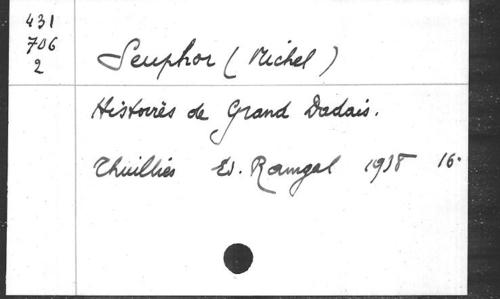 431
706
2
Seuphor (Michel)
Histoires de Grand Dadais.
Thuilliès Ed. Ramgal 1938 16°